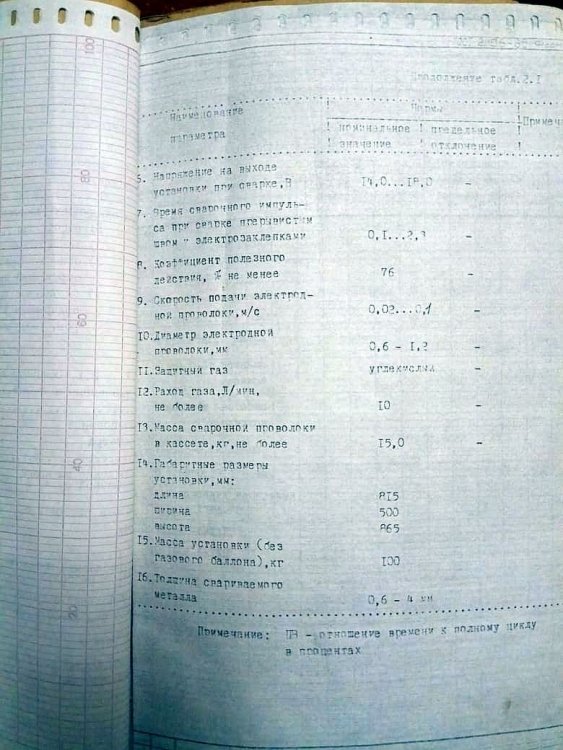 Продолжение табл.2.1
Наименование
параметра
Нормы
номинальное
значение
предельное
отклонение
Примеча
6. Напряжение на выходе
установки при сварке,В 14,0...18,0 -
7. Время сварочного импуль-
са при сварке прерывистым
швом и электрозаклепками 0,1...2,3 -
8. Коэффициент полезного
действия, % не менее 76 -
9. Скорость подачи электрод-
ной проволоки,м/с 0,02...0,1 -
10.Диаметр электродной
проволоки,мм 0,6 - 1,2 -
11.Защитный газ углекислый -
12.Расход газа,Л/мин,
не более 10 -
13.Масса сварочной проволоки
в кассете,кг,не более 15,0 -
14.Габаритные размеры
установки,мм:
длина 815
ширина 500
высота 865
15.Масса установки (без
газового баллона),кг 100
16.Толщина свариваемого
металла 0,6 - 4 мм
Примечание: ПВ - отношение времени к полному циклу
в процентах
100
80
60
40
20